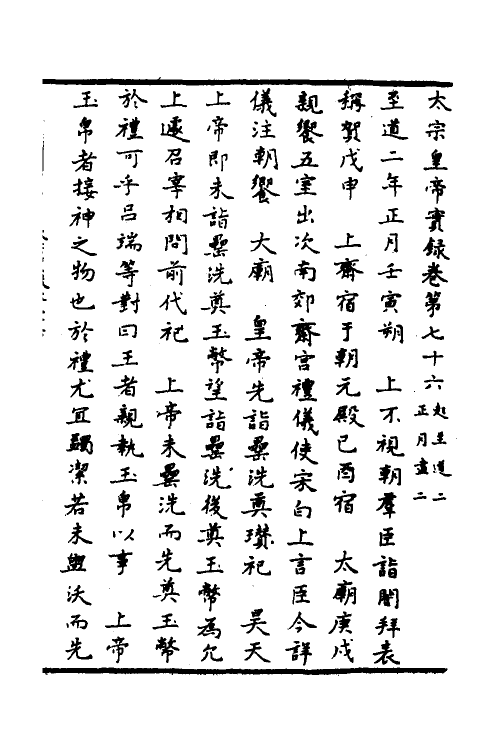 太宗皇帝實録卷第七十六起至道二正月盡二
至道二年正月壬寅朔　上不視朝羣臣詣閤拜表
稱賀戊申　上齋宿于朝元殿己酉宿　太廟庚戌
親饗五室出次南郊齋宮禮儀使宋白上言臣今詳
儀注朝饗　太廟　皇帝先詣罍洗奠瓚祀　昊天
上帝即未詣罍洗奠玉幣望詣罍洗後奠玉幣為允
上遽召宰相問前代祀　上帝未罍洗而先奠玉幣
於禮可乎吕端等對曰王者親執玉帛以事　上帝
玉帛者接神之物也於禮尤宜蠲潔若未盥沃而先